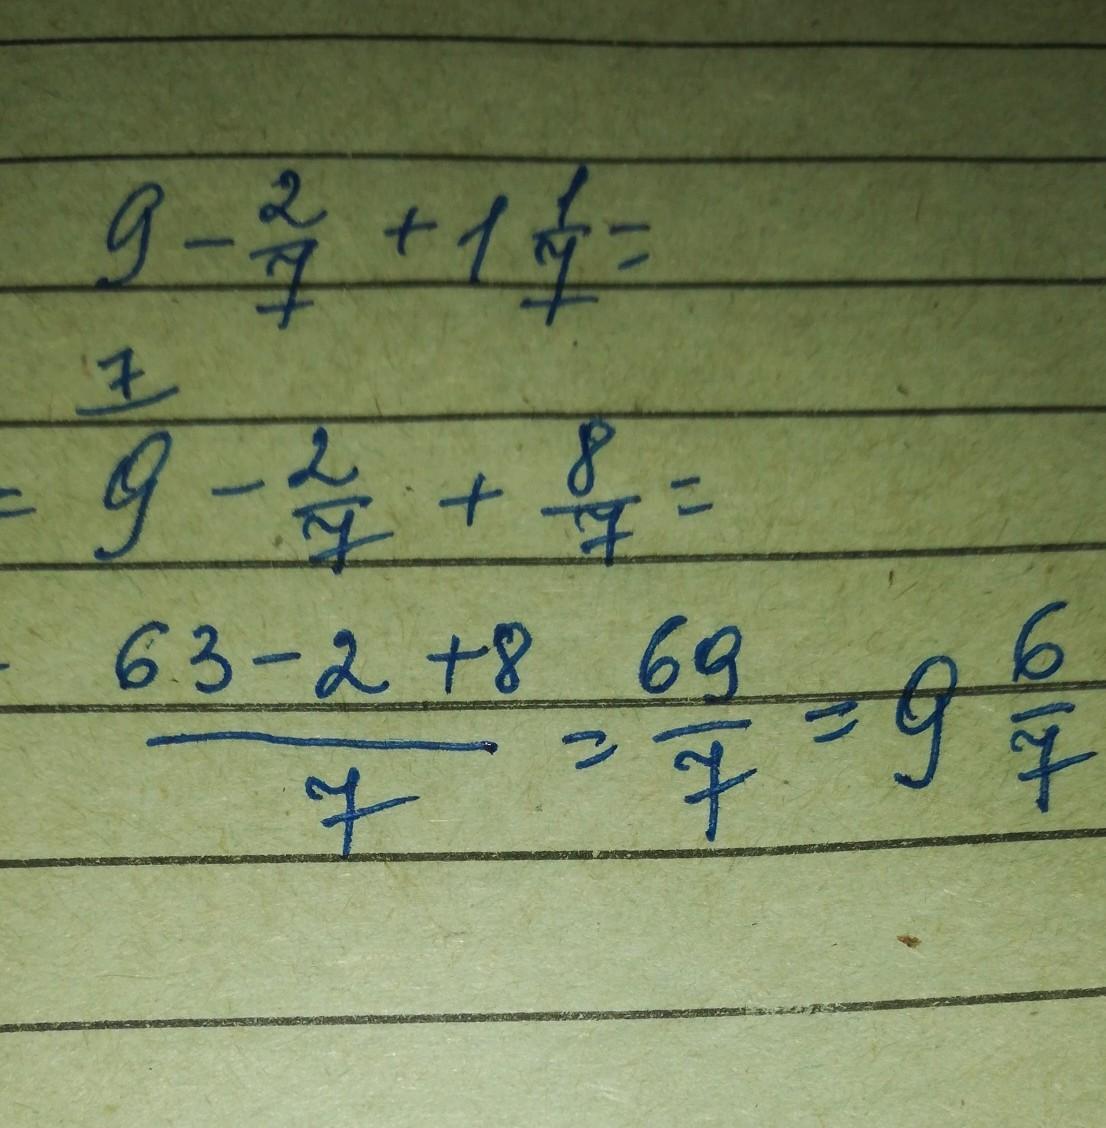 9 - 2/7 + 1 1/7 =
7
= 9 - 2/7 + 8/7 =
63 - 2 + 8 / 7 = 69/7 = 9 6/7